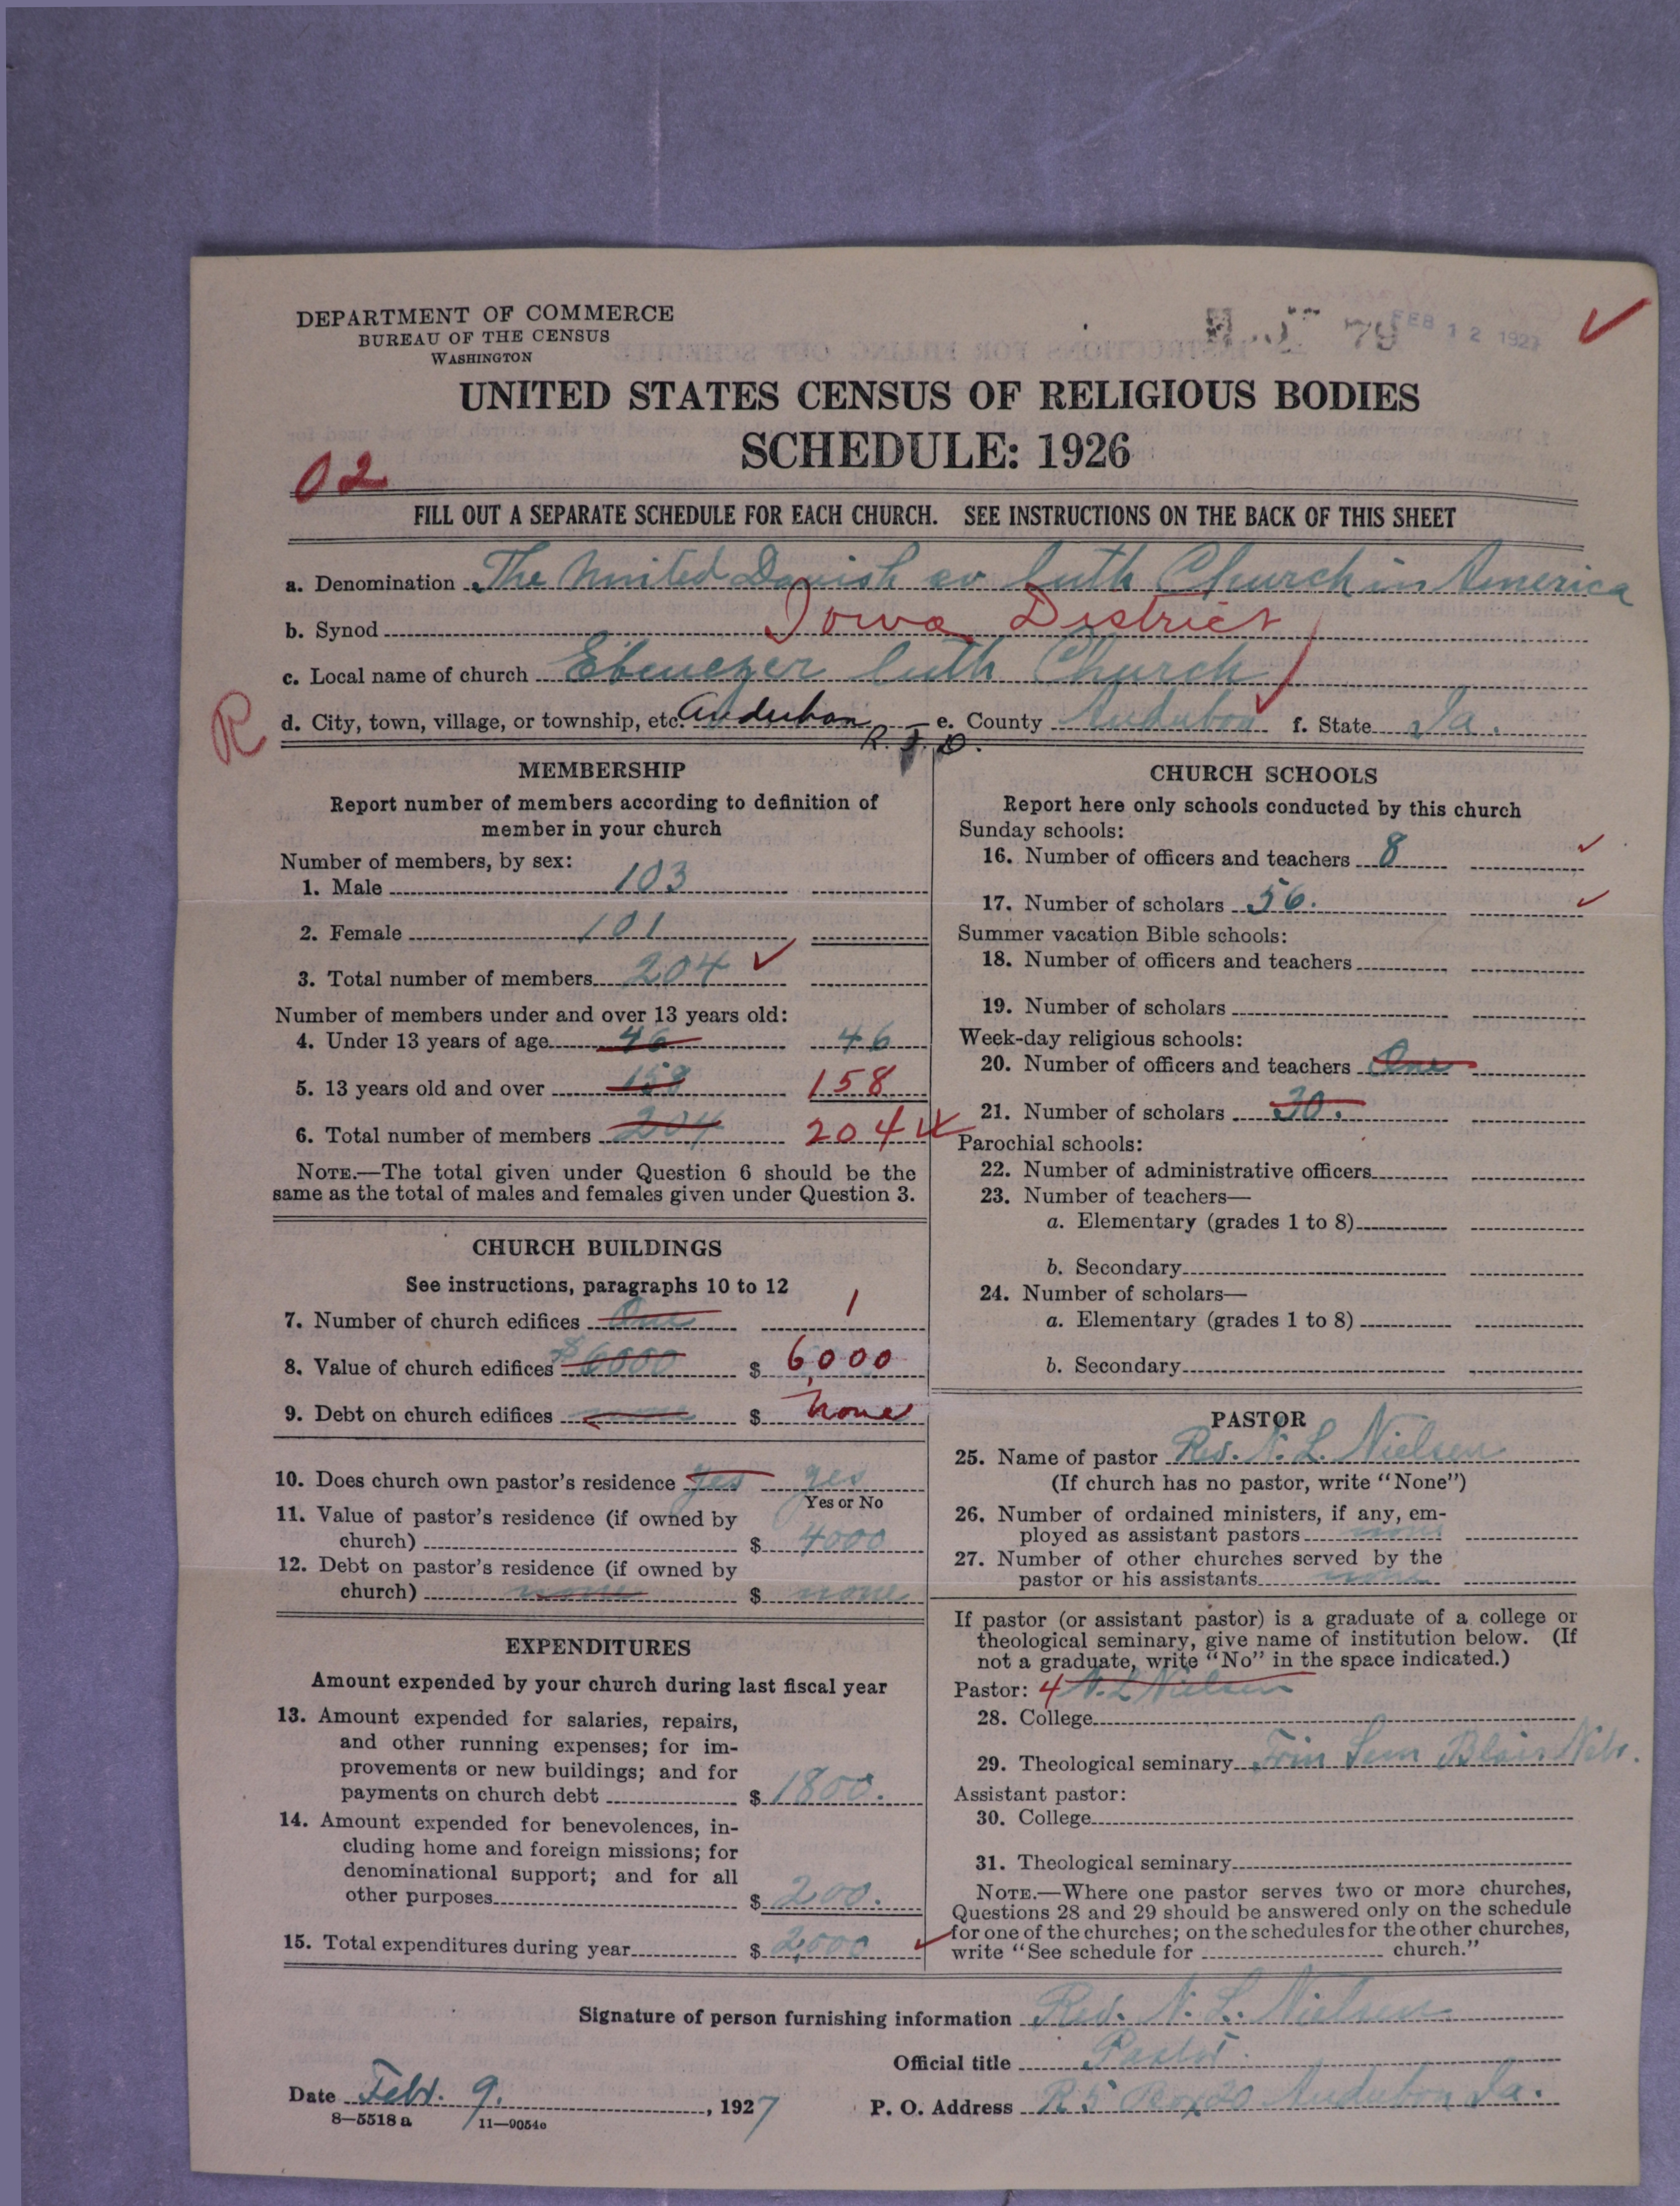 DEPARTMENT OF COMMERCE
BUREAU OF THE CENSUS
WASHINGTON
FEB 12 1927
UNITED STATES CENSUS OF RELIGIOUS BODIES
SCHEDULE: 1926
02
FILL OUT A SEPARATE SCHEDULE FOR EACH CHURCH. SEE INSTRUCTIONS ON THE BACK OF THIS SHEET
a. Denomination The United Danish ev luth Church in America
b. Synod Iowa District
c. Local name of church Ebenezer luth Church
R
d. City, town, village, or township, etc. Audubon R.F.D. e. County Audubon f. State Ia.
MEMBERSHIP
Report number of members according to definition of
member in your church
Number of members, by sex:
1. Male 103
2. Female 101
3. Total number of members 204
Number of members under and over 13 years old:
4. Under 13 years of age 46 46
5. 13 years old and over 158 158
6. Total number of members 204 204
NOTE.—The total given under Question 6 should be the
same as the total of males and females given under Question 3.
CHURCH BUILDINGS
See instructions, paragraphs 10 to 12
7. Number of church edifices One 1
8. Value of church edifices $6000 $ 6000
9. Debt on church edifices none $ none
10. Does church own pastor's residence yes yes
Yes or No
11. Value of pastor's residence (if owned by
church) $ 4000
12. Debt on pastor's residence (if owned by
church) none $ none
EXPENDITURES
Amount expended by your church during last fiscal year
13. Amount expended for salaries, repairs,
and other running expenses; for im-
provements or new buildings; and for
payments on church debt $ 1800.
14. Amount expended for benevolences, in-
cluding home and foreign missions; for
denominational support; and for all
other purposes $ 200.
15. Total expenditures during year $ 2,000
CHURCH SCHOOLS
Report here only schools conducted by this church
Sunday schools:
16. Number of officers and teachers 8
17. Number of scholars 56.
Summer vacation Bible schools:
18. Number of officers and teachers
19. Number of scholars
Week-day religious schools:
20. Number of officers and teachers One
21. Number of scholars 30.
Parochial schools:
22. Number of administrative officers
23. Number of teachers—
a. Elementary (grades 1 to 8)
b. Secondary
24. Number of scholars—
a. Elementary (grades 1 to 8)
b. Secondary
PASTOR
25. Name of pastor Rev. N. L. Nielsen
(If church has no pastor, write "None")
26. Number of ordained ministers, if any, em-
ployed as assistant pastors none
27. Number of other churches served by the
pastor or his assistants none
If pastor (or assistant pastor) is a graduate of a college or
theological seminary, give name of institution below. (If
not a graduate, write "No" in the space indicated.)
Pastor: 4 N. L Nielsen
28. College
29. Theological seminary Trin Sem Blair Nebr.
Assistant pastor:
30. College
31. Theological seminary
NOTE.—Where one pastor serves two or more churches,
Questions 28 and 29 should be answered only on the schedule
for one of the churches; on the schedules for the other churches,
write "See schedule for church."
Signature of person furnishing information Rev. N. L. Nielsen
Official title Pastor.
Date Febr. 9., 1927
P. O. Address R 5 Box 20 Audubon Ia.
8—5518 a 11—9054c